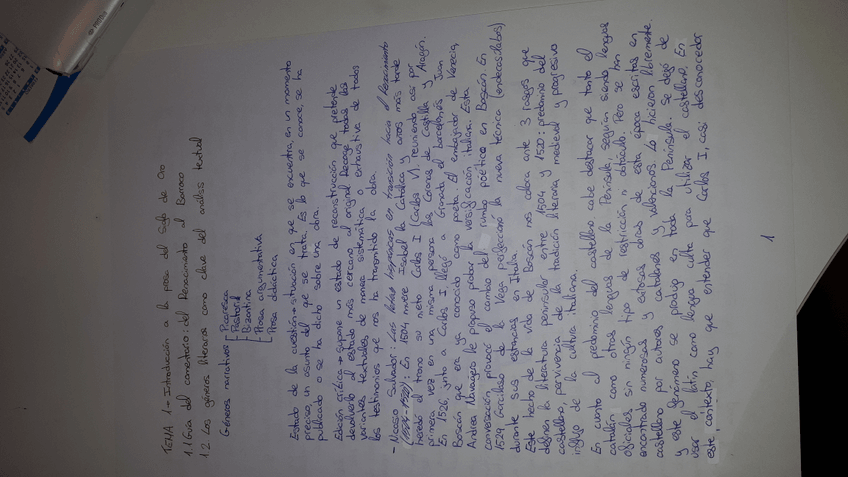 TEMA 1 - Introducción a la prosa del Siglo de Oro
1.1 Guía del comentario: del Renacimiento al Barroco
1.2 Los géneros literarios como clave del análisis textual
Géneros narrativos - Picaresca
- Pastoril
- Bizantina
- Prosa argumentativa
- Prosa didáctica
Estado de la cuestión → situación en que se encuentra, en un momento
preciso, un asunto del que se trata. Es lo que se conoce, se ha
publicado o se ha dicho sobre una obra.
Edición crítica → supone un estado de reconstrucción que pretende
devolverlo al estado más cercano al original. Recoge todas las
variantes textuales de manera sistemática o exhaustiva de todos
los testimonios que nos ha transmitido la obra.
- Nicasio Salvador: Las letras hispánicas en transición hacia el Renacimiento
(1504-1520): En 1504 muere Isabel la Católica y años más tarde
heredó el trono su nieto Carlos I (Carlos V) reuniendo así por
primera vez en una misma persona las Coronas de Castilla y Aragón.
En 1526, junto a Carlos I, llegó a Granada el barcelonés Juan
Boscán que era ya conocido como poeta. El embajador de Venecia,
Andrea Navagero le propuso probar la versificación italiana. Esta
conversación provocó el cambio del rumbo poético en Boscán. En
1529 Garcilaso de la Vega perfeccionó la nueva técnica (endecasílabos)
durante sus estancias en Italia.
Este hecho de la vida de Boscán nos coloca ante 3 rasgos que
definen la literatura peninsular entre 1504 y 1520: predominio del
castellano, pervivencia de la tradición literaria medieval y progresivo
influjo de la cultura italiana.
En cuanto al predominio del castellano cabe destacar que tanto el
catalán como otras lenguas de la Península, seguían siendo lenguas
oficiales sin ningún tipo de restricción o obstáculo. Pero se han
encontrado numerosas y exitosas obras de esta época escritas en
castellano por autores catalanes y valencianos. Lo hicieron libremente.
y este fenómeno se produjo en toda la Península. Se dejó de
usar el latín como lengua culta para utilizar el castellano. En
este contexto, hay que entender que Carlos I, casi desconocedor
1